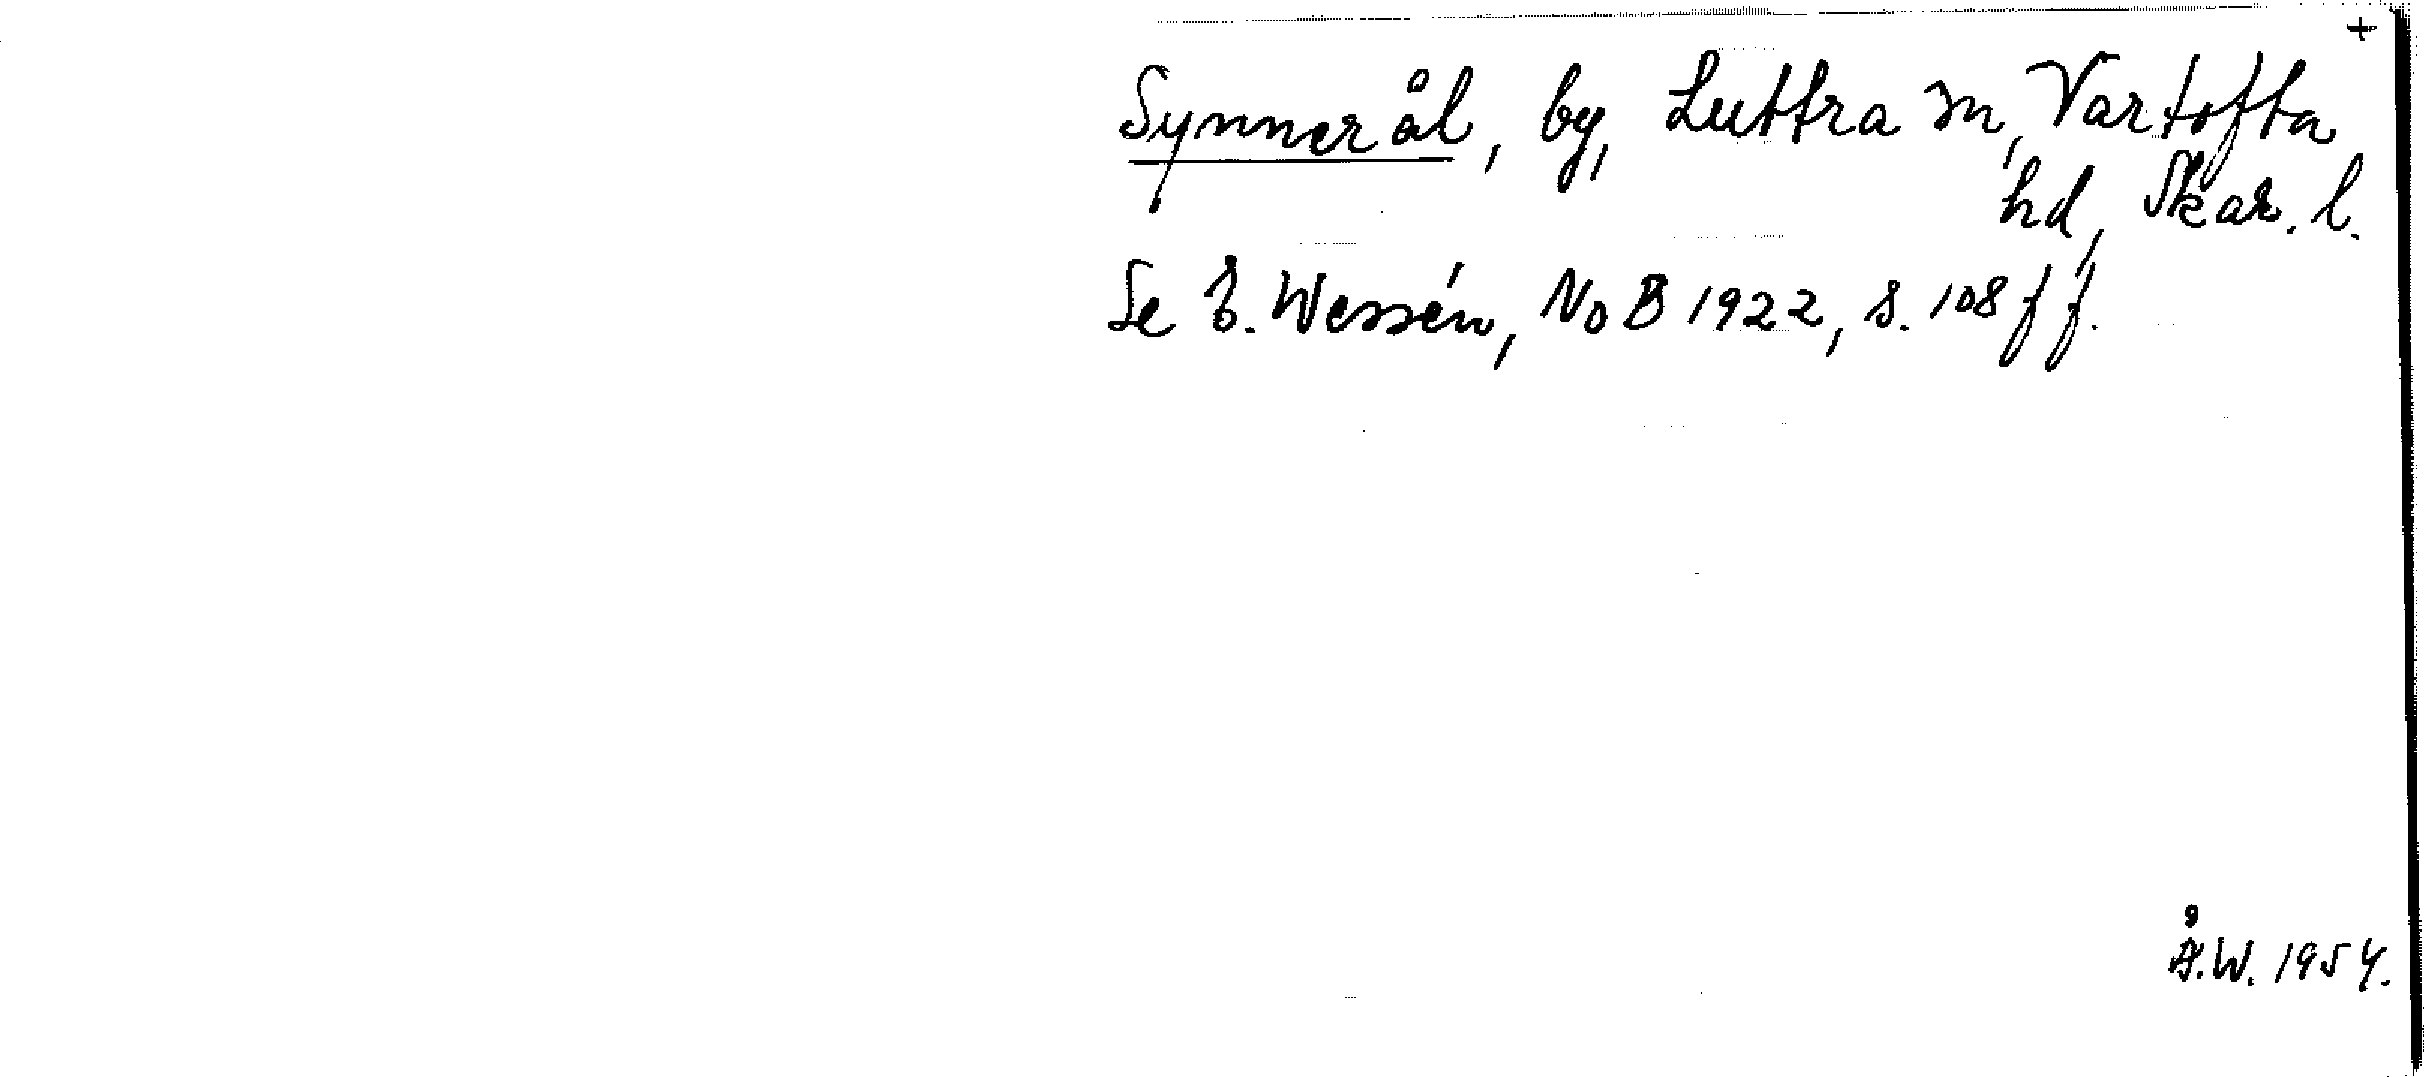 +
Synnerål, by, Luttra sn, Vartofta
hd, Skar. l.
Se E. Wessén, NoB 1922, s. 108 ff.
Å.W. 1954.